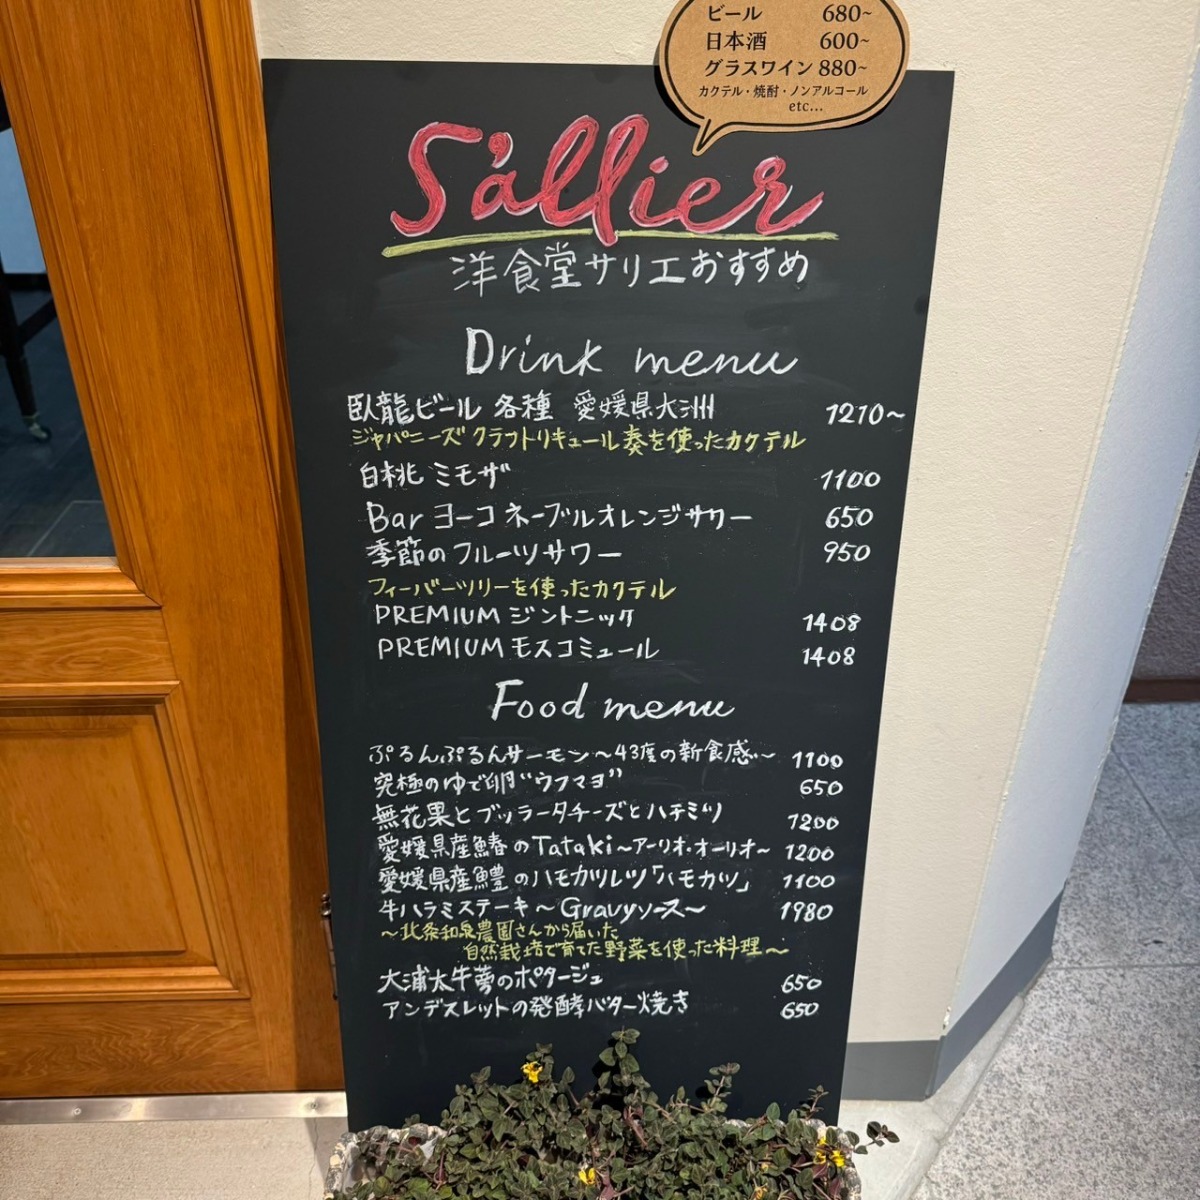 ビール 680~
日本酒 600~
グラスワイン 880~
カクテル・焼酎・ノンアルコール
etc...
S'allier
洋食堂サリエおすすめ
Drink menu
臥龍ビール 各種 愛媛県大洲 1210~
ジャパニーズクラフトリキュール奏を使ったカクテル
白桃ミモザ 1100
Bar ヨーコ ネーブルオレンジサワー 650
季節のフルーツサワー 950
フィーバーツリーを使ったカクテル
PREMIUM ジントニック 1408
PREMIUM モスコミュール 1408
Food menu
ぷるんぷるんサーモン~43度の新食感~ 1100
究極のゆで卵"ウフマヨ" 650
無花果とブッラータチーズとハチミツ 1200
愛媛県産鰆のTataki~アーリオ・オーリオ~ 1200
愛媛県産鱧のハモカツレツ「ハモカツ」 1100
牛ハラミステーキ~Gravyソース~ 1980
~北条和泉農園さんから届いた
自然栽培で育てた野菜を使った料理~
大浦太牛蒡のポタージュ 650
アンデスレットの発酵バター焼き 650